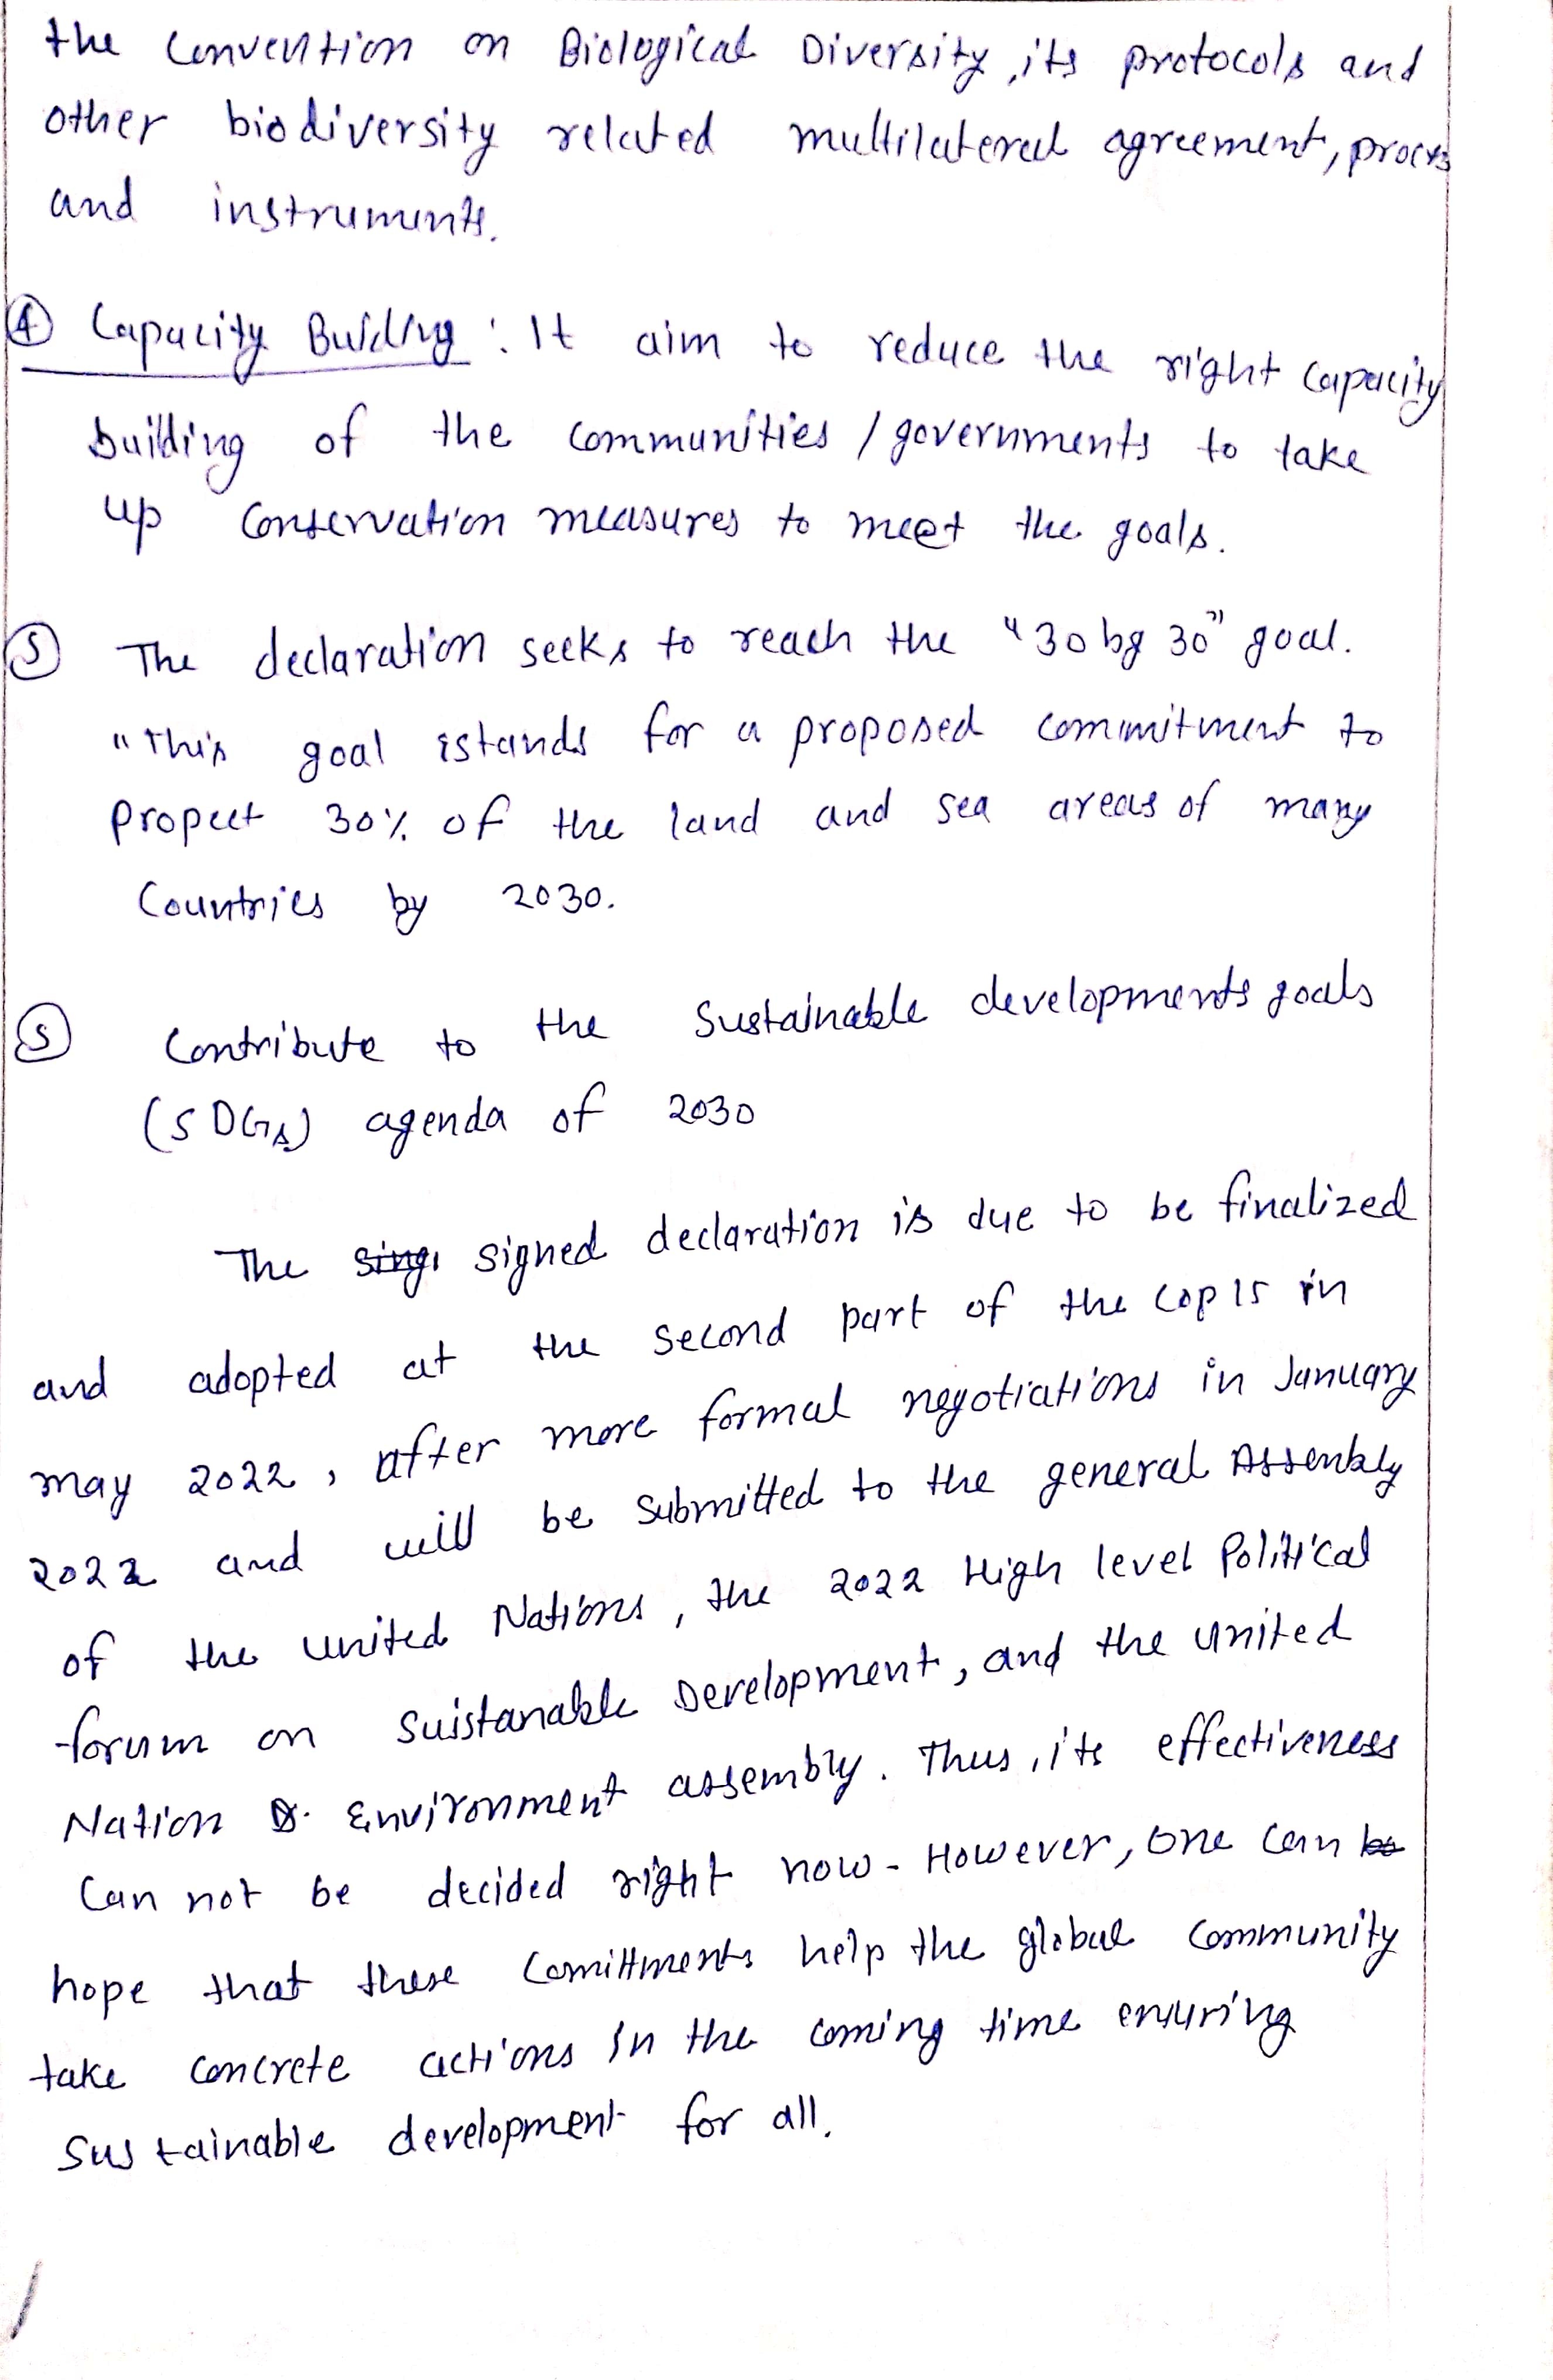 the Convention on Biological Diversity, its protocols and
other biodiversity related multilateral agreement, process
and instruments.
④ Capacity Buiding : It aim to reduce the right capacity
building of the communities / governments to take
up Conservation measures to meet the goals.
⑤ The declaration seeks to reach the "30 by 30" goal.
"This goal istands for a proposed commitment to
propect 30% of the land and sea areas of many
Countries by 2030.
⑤ Contribute to the Sustainable developments goals
(SDGs) agenda of 2030
The singi signed declaration is due to be finalized
and adopted at the second part of the COP 15 in
may 2022, after more formal negotiations in January
2022 and will be submitted to the general Assembly
of the united Nations, the 2022 High level Political
forum on Suistanable Development, and the united
Nation Environment assembly. Thus, its effectiveness
Can not be decided right now - However, one can be
hope that these Comittments help the global Community
take concrete actions in the coming time ensuring
Sustainable development for all.